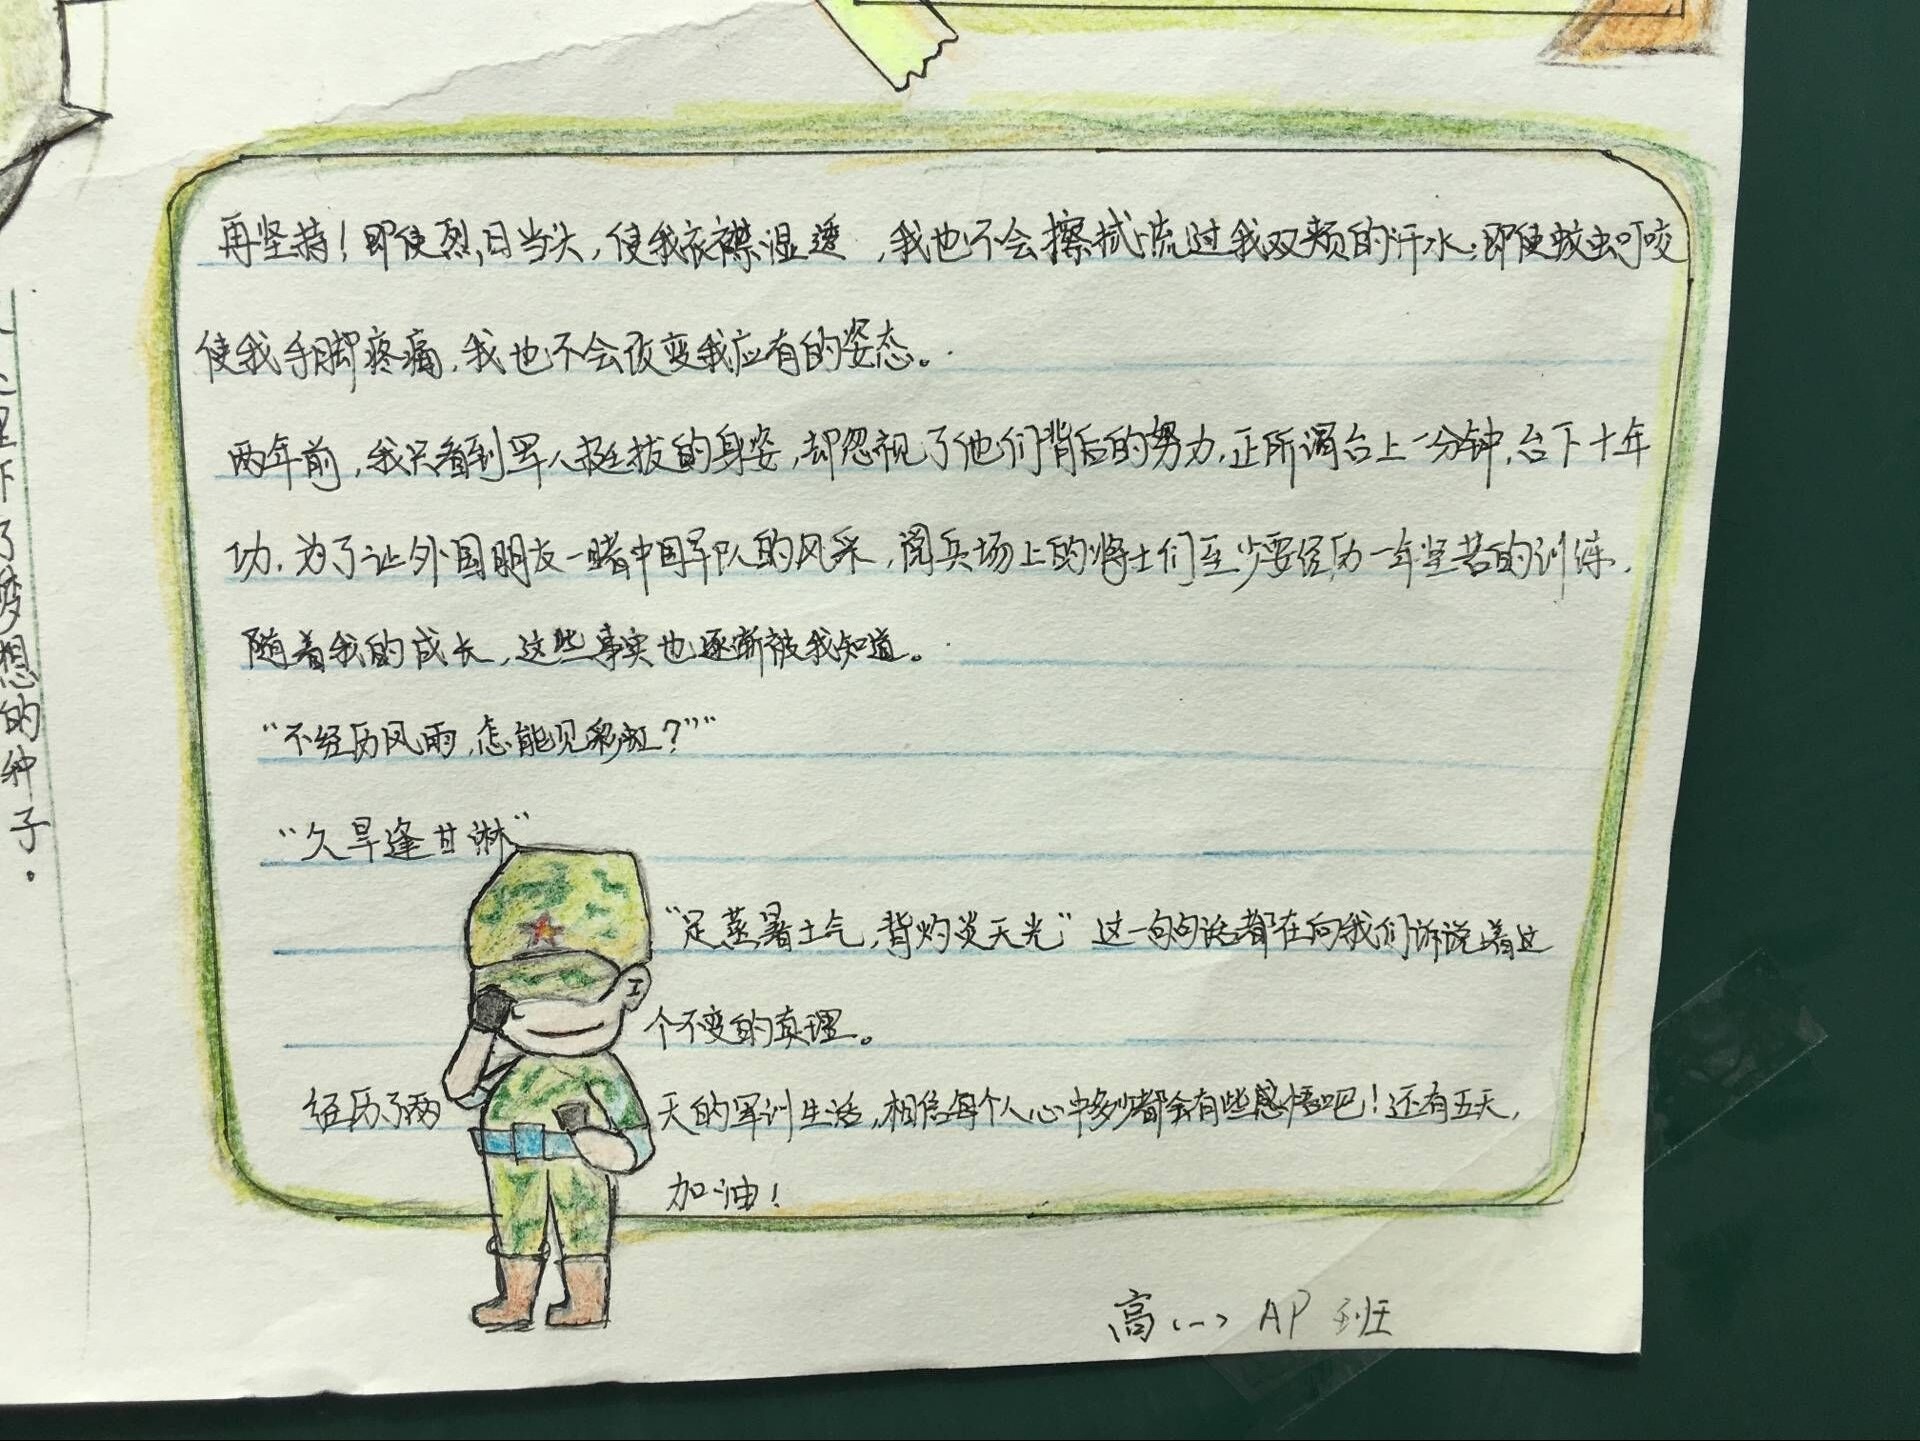 再坚持！即使烈日当头，使我衣襟湿透，我也不会擦拭流过我双颊的汗水；即使蚊虫叮咬
使我手脚疼痛，我也不会改变我应有的姿态。
两年前，我只看到军人挺拔的身姿，却忽视了他们背后的努力，正所谓台上一分钟，台下十年
功，为了让外国朋友一睹中国军队的风采，阅兵场上的将士们至少要经历一年坚苦的训练，
随着我的成长，这些事实也逐渐被我知道。
“不经历风雨，怎能见彩虹？”“
“久旱逢甘淋”
“足蒸暑土气，背灼炎天光”这一句句话都在向我们诉说着这
个不变的真理。
经历了两天的军训生活，相信每个人心中多少都会有些感悟吧！还有五天，
加油！
高（一）AP班
下了梦想的种子.